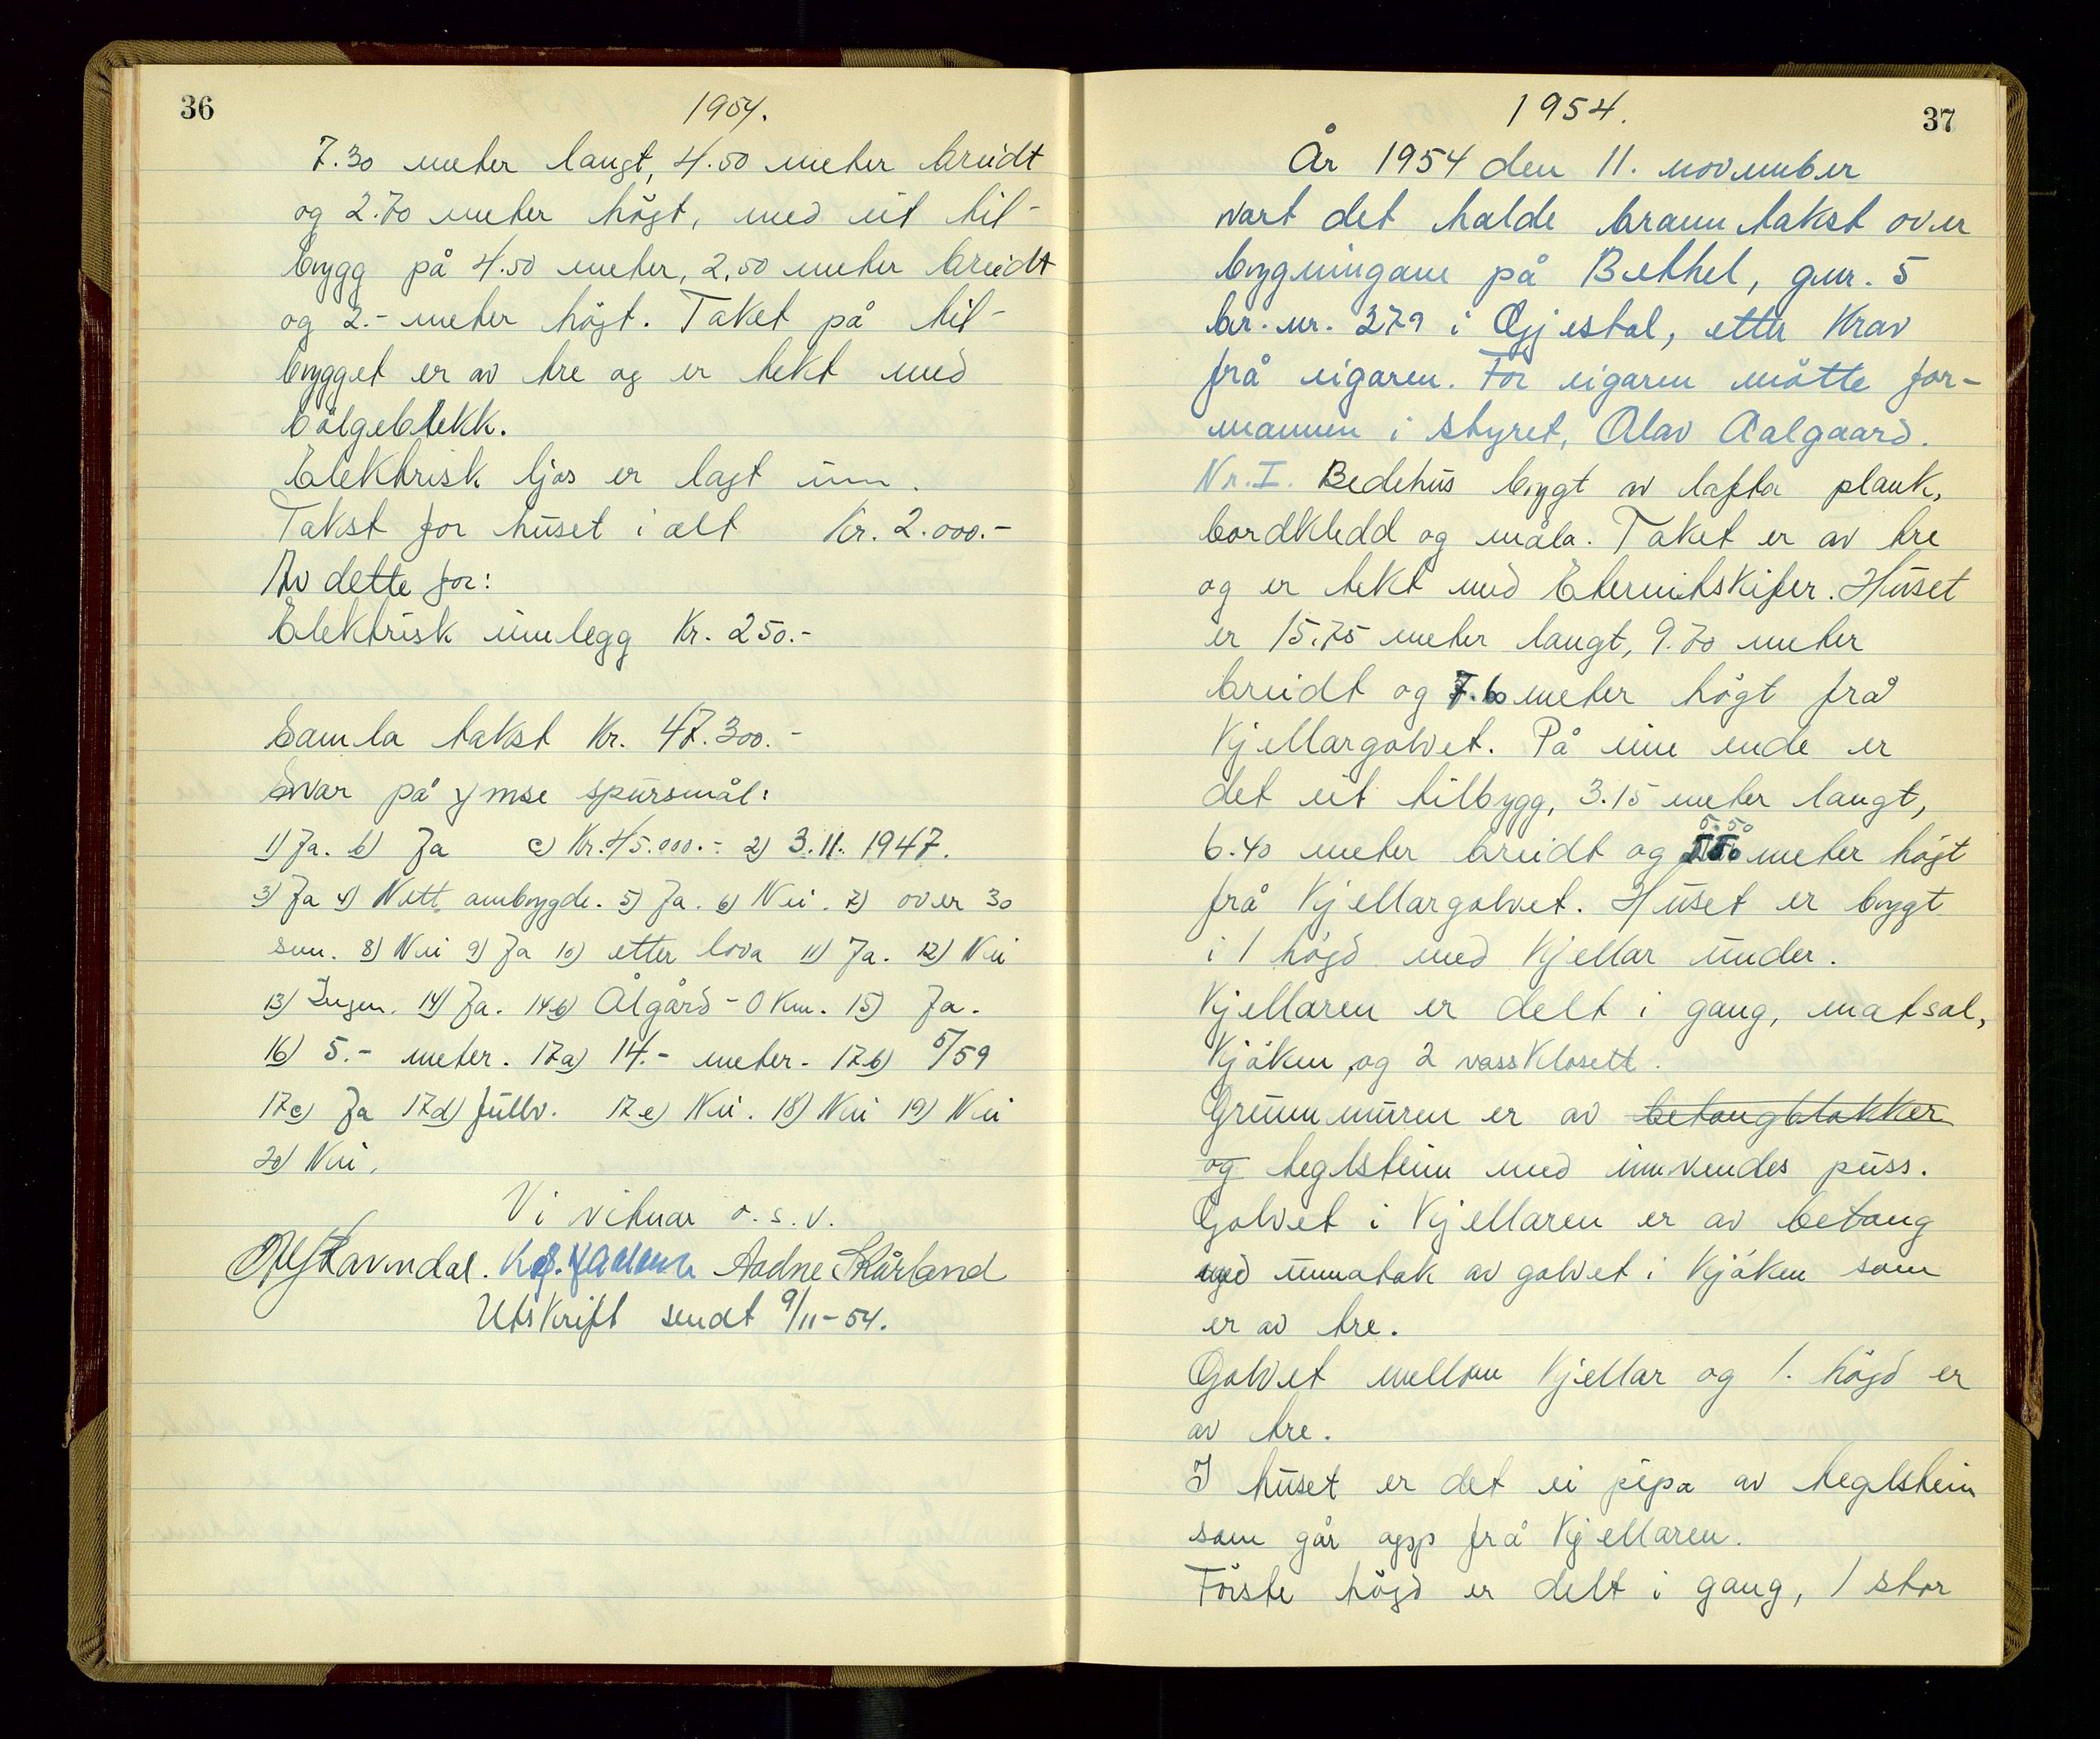 36
1954.
7.30 meter langt, 4.50 meter breidt
og 2.70 meter högt, med eit til-
bygg på 4.50 meter, 2,50 meter breidt
og 2.- meter högt. Taket på til-
bygget er av tre og er tekt med
bölgeblekk.
Elektrisk ljos er lagt inn.
Takst for huset i alt Kr. 2.000.-
Av dette for:
Elektrisk innlegg Kr. 250.-
Samla takst Kr. 47.300.-
Svar på ymse spursmål:
1) Ja. b) Ja c) Kr. 45.000.- 2) 3.11. 1947.
3) Ja 4) Nett ombygde. 5) Ja. 6) Nei. 7) over 30
sm. 8) Nei 9) Ja 10) etter lova 11) Ja. 12) Nei
13) Ingen. 14) Ja. 14b) Ålgård - 0 Km. 15) Ja.
16) 5.- meter. 17a) 14.- meter. 17b) 5/59
17c) Ja 17d) fullv. 17e) Nei. 18) Nei 19) Nei
20) Nei.
Vi vitnar o.s.v.
Ravndal. Aadne Skårland
Utskrift sendt 9/11-54.
37
1954.
År 1954 den 11. november
vart det halde branntakst over
bygningane på Bethel, gnr. 5
br. nr. 279 i Gjestal, etter Krav
frå eigaren. For eigaren mötte for-
mannen i styret, Olav Aalgaard.
Nr. I. Bedehus bygt av lafta plank,
bordkledd og måla. Taket er av tre
og er tekt med Eternitskifer. Huset
er 15.75 meter langt, 9.70 meter
breidt og 7.60 meter högt frå
Kjellargolvet. På eine ende er
det eit tilbygg, 3.15 meter langt,
5.50
6.40 meter breidt og 5.50 meter högt
frå Kjellargolvet. Huset er bygt
i 1 högd med Kjellar under.
Kjellaren er delt i gang, matsal,
Kjöken, og 2 vassklosett.
Grunnmuren er av betongblokker
og teglstein med innvendes puss.
Golvet i Kjellaren er av betong
med unnatak av golvet i Kjöken som
er av tre.
Golvet mellom Kjellar og 1. högd er
av tre.
I huset er det ei pipa av teglstein
som går opp frå Kjellaren.
Förste högd er delt i gang, 1 stor